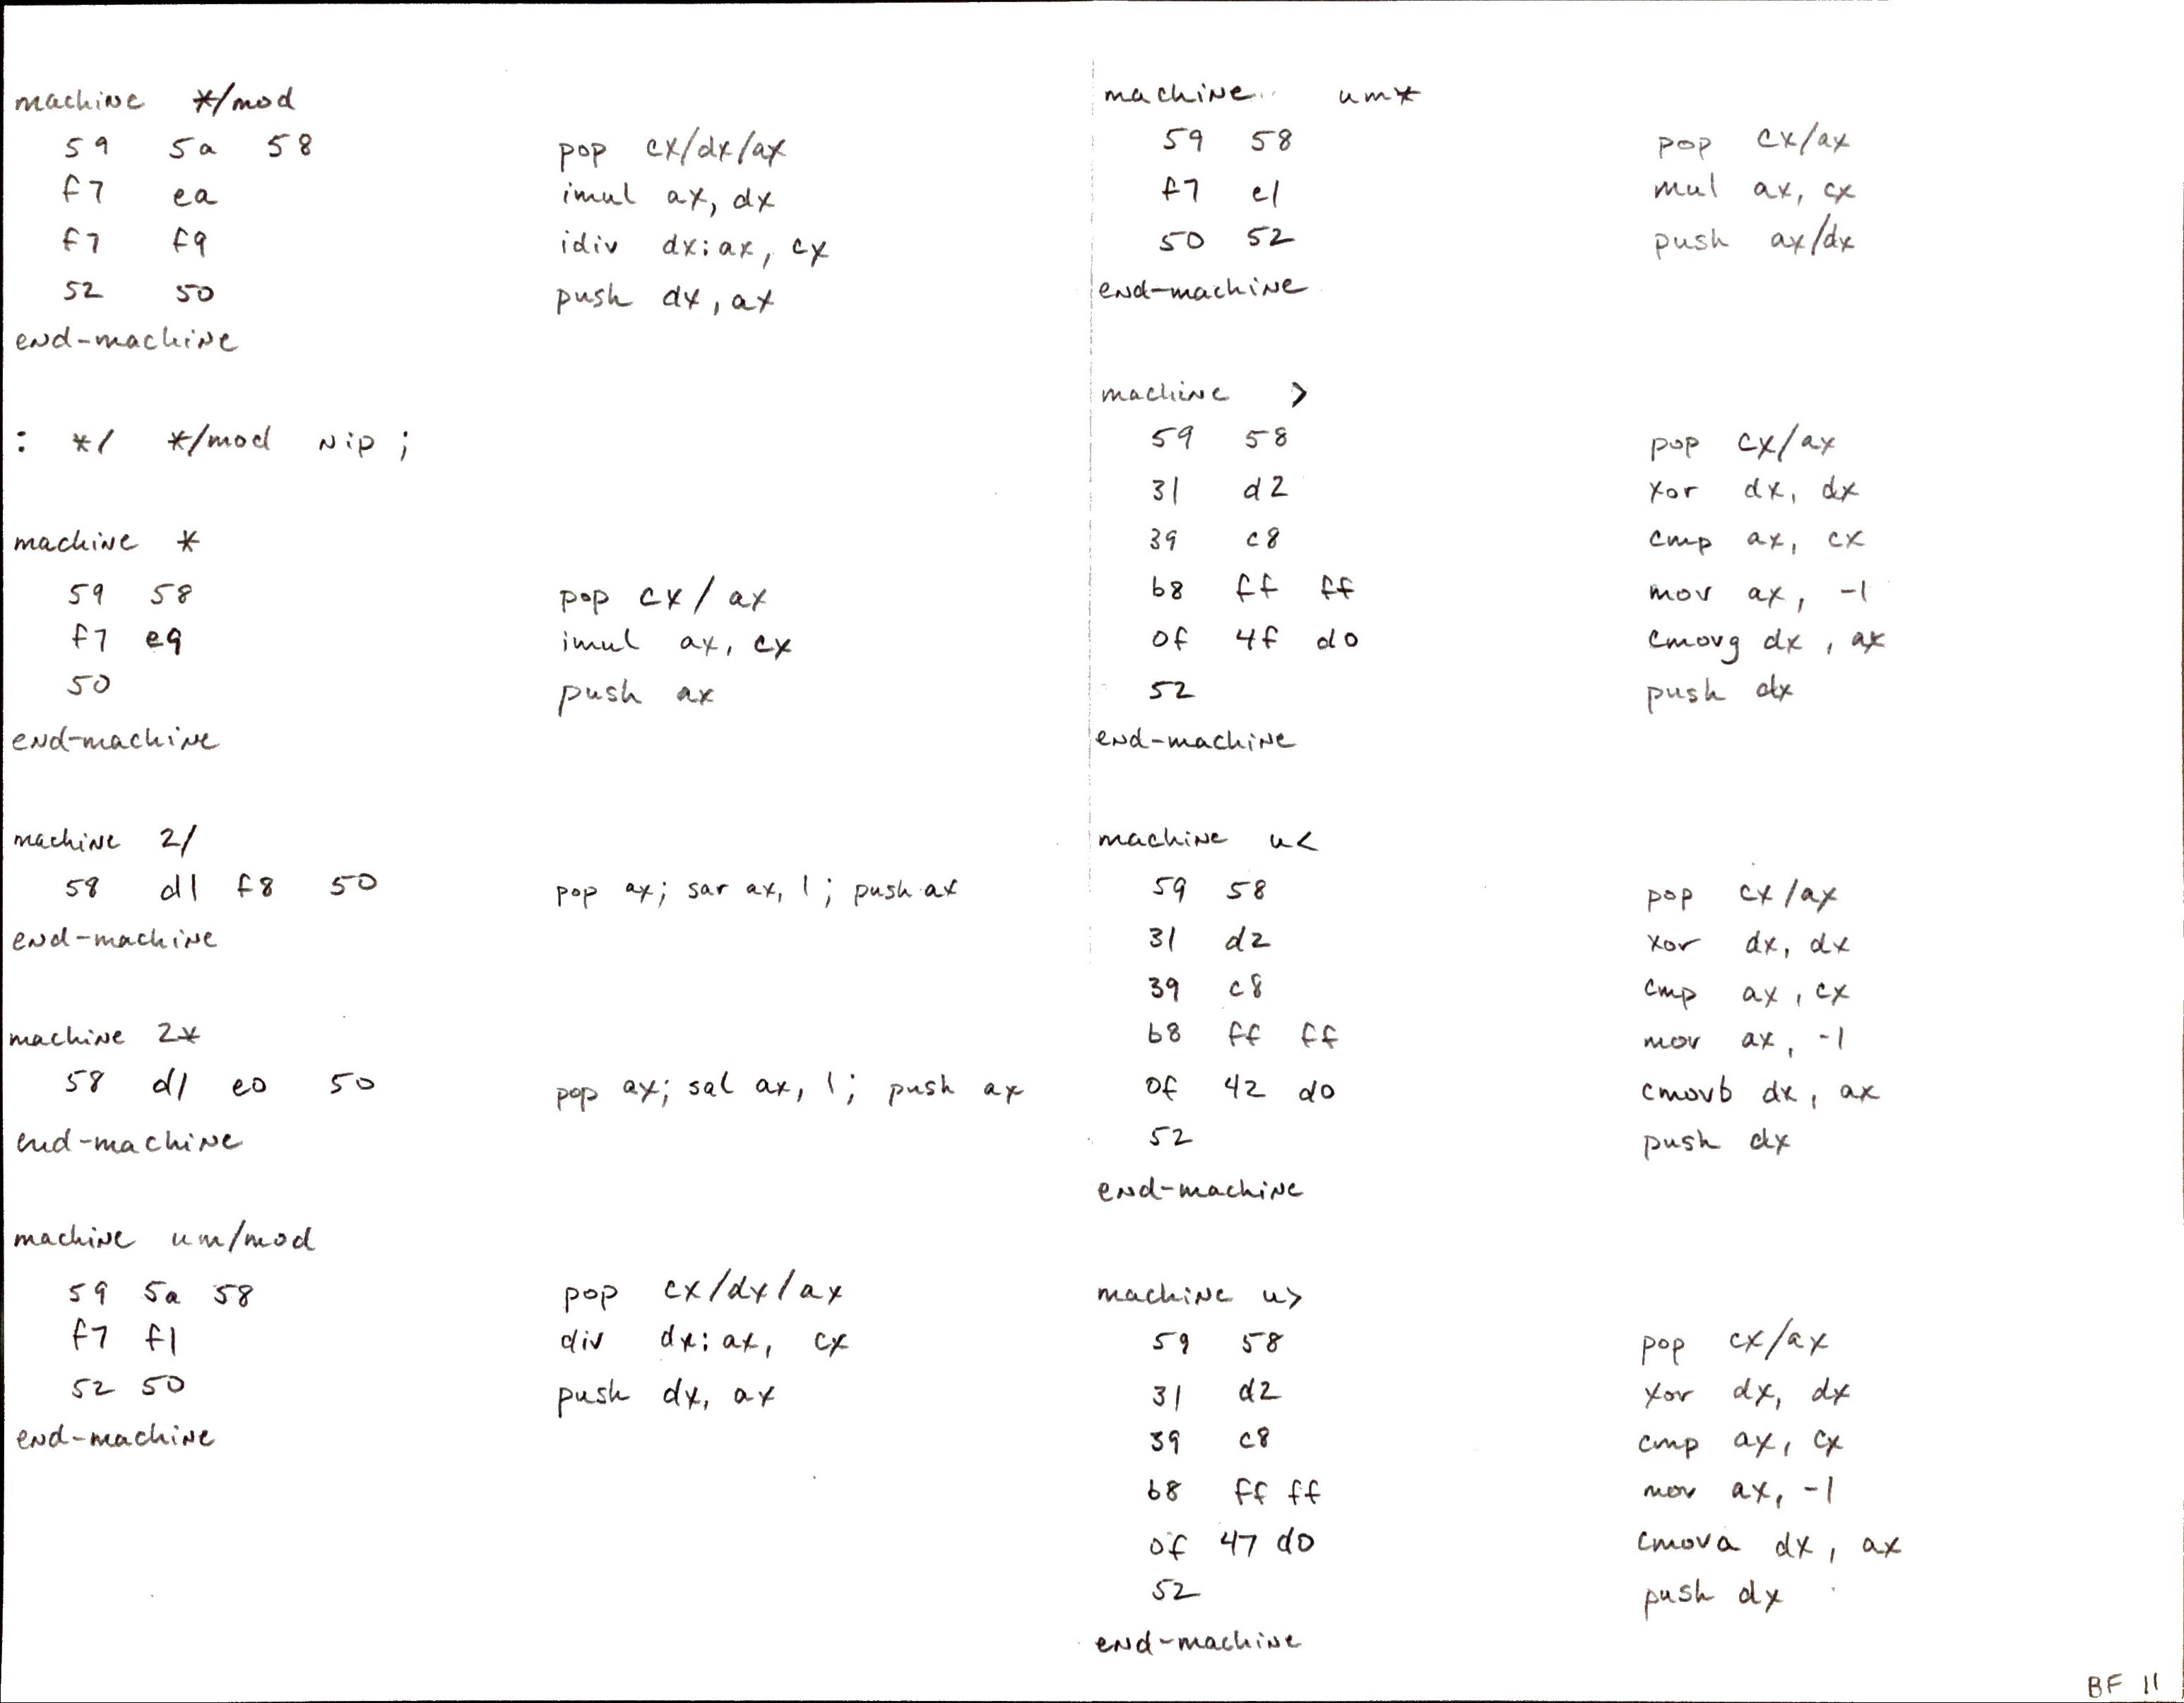 machine */mod
59 5a 58 pop cx/dx/ax
f7 ea imul ax, dx
f7 f9 idiv dx:ax, cx
52 50 push dx, ax
end-machine
: */ */mod nip ;
machine *
59 58 pop cx/ax
f7 e9 imul ax, cx
50 push ax
end-machine
machine 2/
58 d1 f8 50 pop ax; sar ax, 1; push ax
end-machine
machine 2*
58 d1 e0 50 pop ax; sal ax, 1; push ax
end-machine
machine um/mod
59 5a 58 pop cx/dx/ax
f7 f1 div dx:ax, cx
52 50 push dx, ax
end-machine
machine um*
59 58 pop cx/ax
f7 e1 mul ax, cx
50 52 push ax/dx
end-machine
machine >
59 58 pop cx/ax
31 d2 xor dx, dx
39 c8 cmp ax, cx
b8 ff ff mov ax, -1
0f 4f d0 cmovg dx, ax
52 push dx
end-machine
machine u<
59 58 pop cx/ax
31 d2 xor dx, dx
39 c8 cmp ax, cx
b8 ff ff mov ax, -1
0f 42 d0 cmovb dx, ax
52 push dx
end-machine
machine u>
59 58 pop cx/ax
31 d2 xor dx, dx
39 c8 cmp ax, cx
b8 ff ff mov ax, -1
0f 47 d0 cmova dx, ax
52 push dx
end-machine
BF 11